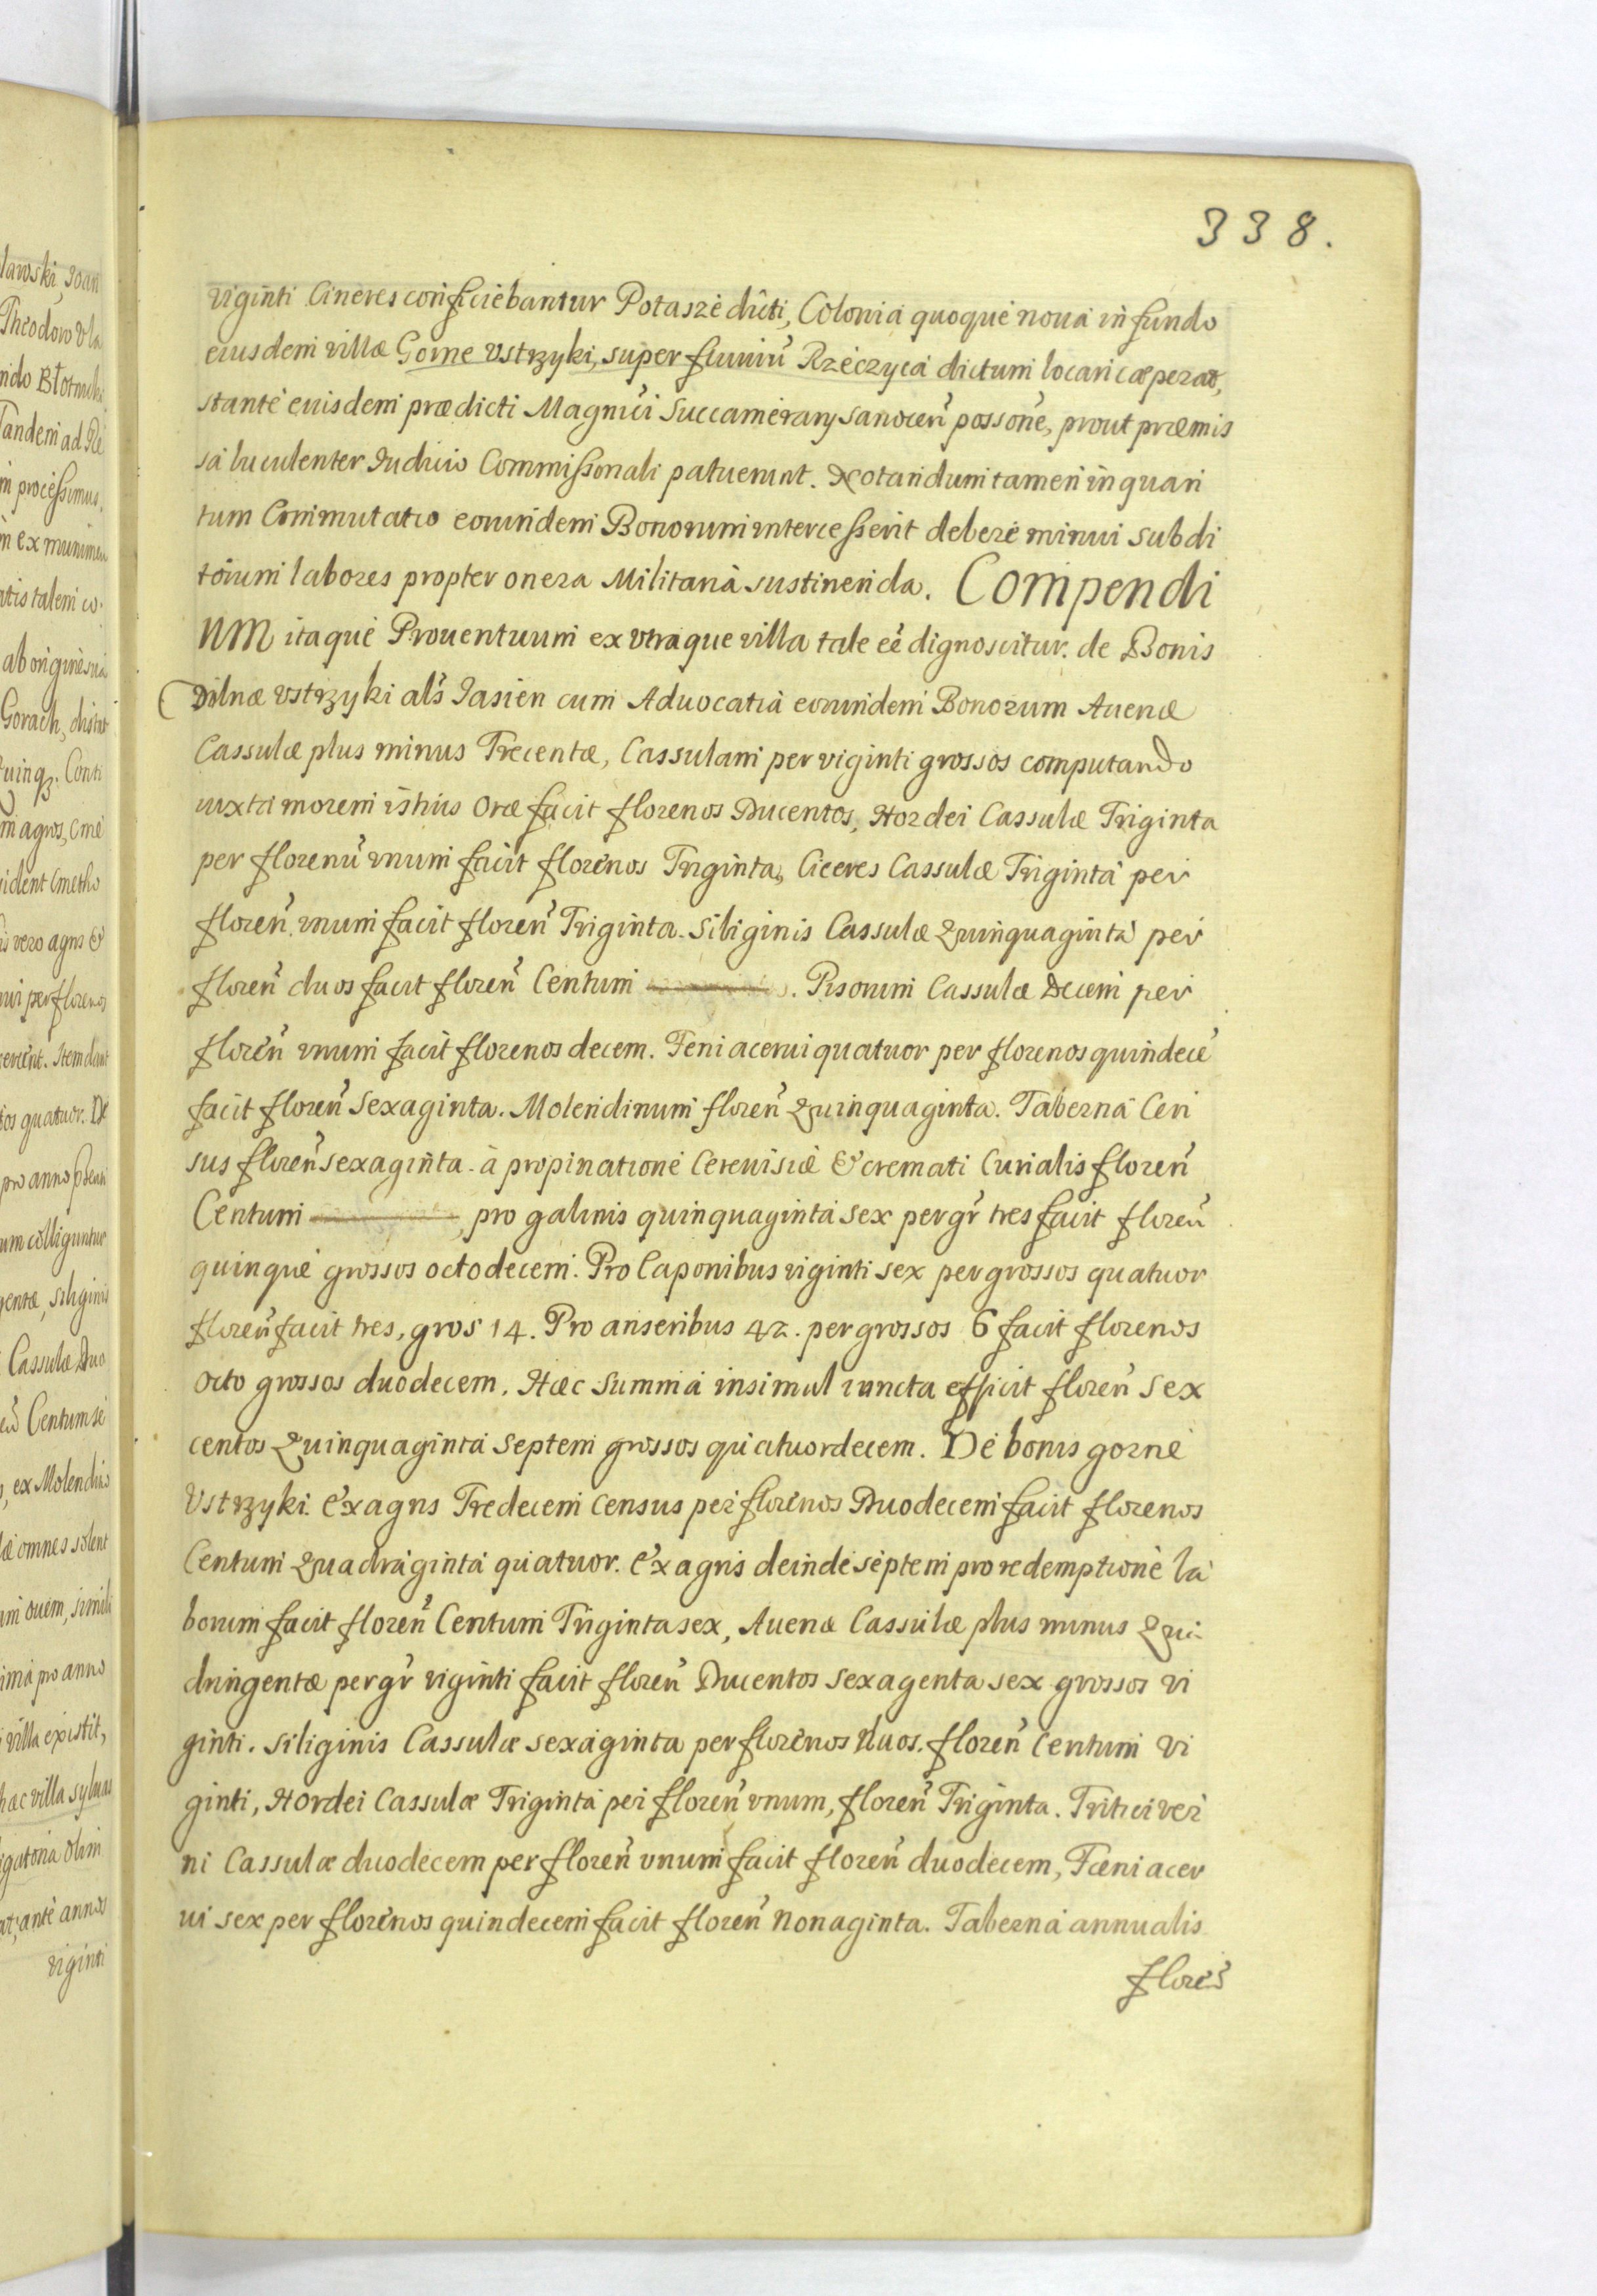 338.
viginti Cineres conficiebantur Potasze dicti, Colonia quoque noua in fundo
eiusdem villæ Gorne Vstrzyki, super fluuiu Rzeczyca dictum locari cæperat,
stante euisdem prædicti Magnici Succamerary Sanocen possone, prout præmis
sa luculenter Iudicio Commissonali patuerunt. Notandum tamen in quan
tum Commutatio eorundem Bonorum intercesserit debere minui subdi
torum labores propter onera Militaria sustinenda. Compendi
um itaque Prouentuum ex vtraque villa tale eé dignoscitur. de Bonis
Dolnæ Vstrzyki als Iasien cum Aduocatia eorundem Bonorum Auenæ
Cassulæ plus minus Trecentæ, Cassulam per viginti grossos computando
iuxta morem istius Oræ facit florenos Ducentos, Hordei Cassulæ Triginta
per florenu vnum facit florenos Triginta, Ciceres Cassulæ Triginta per
floren vnum facit floren Triginta. Siliginis Cassulæ Quinquaginta per
floren duos facit floren Centum . Pisorum Cassulæ Decem per
floren vnum facit florenos decem. Feni acerui quatuor per florenos quindece
facit floren Sexaginta. Molendinum floren Quinquaginta. Taberna Cen
sus floren sexaginta. à propinatione Cereuisiæ & cremati Curialis floren
Centum , pro galinis quinquaginta sex per gr tres facit floren
quinque grossos octodecem. Pro Caponibus viginti sex per grossos quatuor
floren facit tres, gros 14. Pro anseribus 42. per grossos 6 facit florenos
octo grossos duodecem. Hæc Summa insimul iuncta efficit floren Sex
centos Quinquaginta Septem grossos quatuordecem. De bonis gorne
Vstrzyki. Ex agris Tredecem Census per florenos Duodecem facit florenos
Centum Quadraginta quatuor. Ex agris deinde septem pro redemptione la
borum facit floren Centum Triginta sex, Auenæ Cassulæ plus minus Qua
dringentæ per gr viginti facit floren Ducentos sexagenta sex grossos vi
ginti. Siliginis Cassulæ sexaginta per florenos duos. floren Centum Vi
ginti, Hordei Cassulæ Triginta per floren vnum, floren Triginta. Tritici ver
ni Cassulæ duodecem per floren vnum facit floren duodecem, Fæni acer
ui sex per florenos quindecem facit floren Nonaginta. Taberna annualis
floren